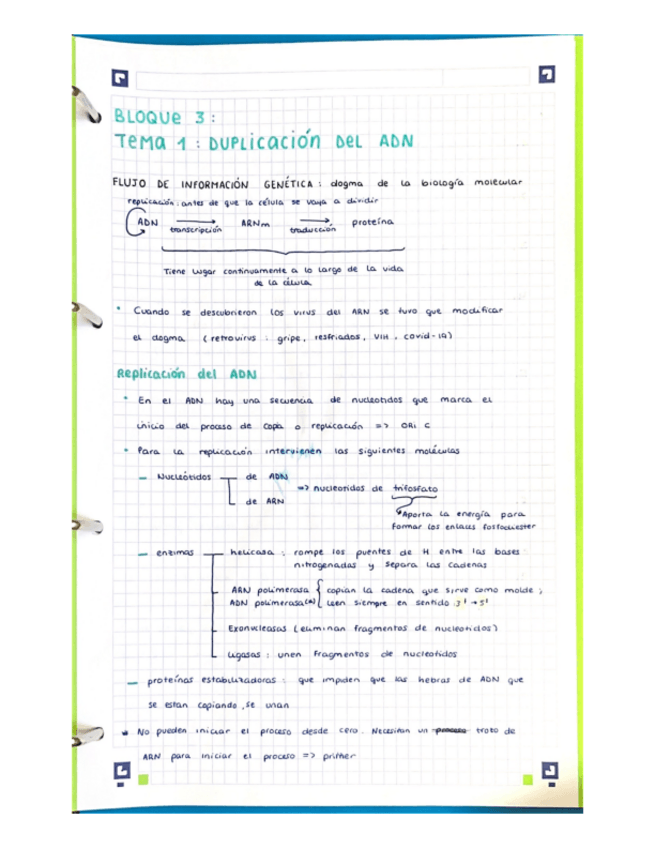 BLOQUE 3:
Tema 1: DUPLICACIÓN DEL ADN
FLUJO DE INFORMACIÓN GENÉTICA: dogma de la biología molecular
replicación: antes de que la célula se vaya a dividir
ADN → ARNm → proteína
transcripción traducción
Tiene lugar continuamente a lo largo de la vida
de la célula
• Cuando se descubrieron los virus del ARN se tuvo que modificar
el dogma (retrovirus: gripe, resfriados, VIH, covid-19)
Replicación del ADN
• En el ADN hay una secuencia de nucleotidos que marca el
inicio del proceso de copia o replicación => ORI C
• Para la replicación intervienen las siguientes moléculas
— Nucleótidos de ADN
=> nucleotidos de trifosfato
de ARN
Aporta la energía para
formar los enlaces fosfodiester
— enzimas helicasa: rompe los puentes de H entre las bases
nitrogenadas y separa las cadenas
ARN polimerasa { copian la cadena que sirve como molde;
ADN polimerasa leen siempre en sentido 3' → 5'
Exonucleasas (eliminan fragmentos de nucleotidos)
Ligasas: unen fragmentos de nucleotidos
— proteínas estabilizadoras: que impiden que las hebras de ADN que
se estan copiando, se unan
* No pueden iniciar el proceso desde cero. Necesitan un proceso trozo de
ARN para iniciar el proceso => primer